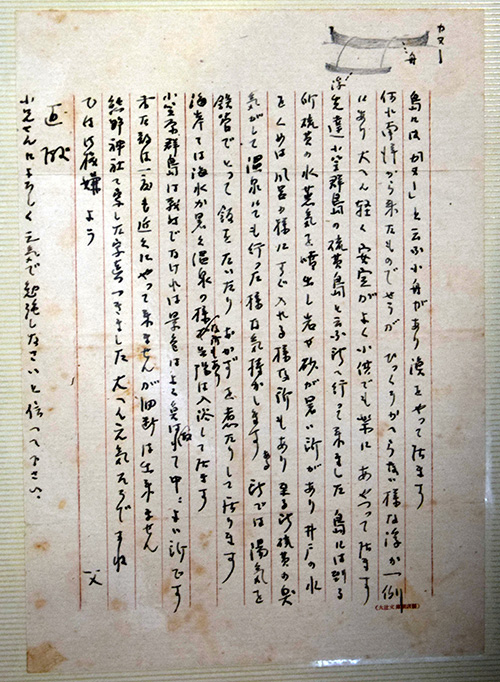 カヌー
舟
浮
島には「カヌー」と云ふ小舟があり漁をやって居ます
何れ南洋から来たものでせうが ひっくりかへらない様な浮が一側
にあり大へん軽く安定がよく小供でも楽にあやつって居ます
先達小笠群島の硫黄島と云ふ所へ行って来ました 島には到る
所硫黄の水蒸気を噴出し岩や砂が暑い所があり 井戸の水
をくめば風呂の様にすぐ入れる様な所もあり 至る所硫黄の臭
気がして温泉にでも行った様な気持がします ある所では湯気を
鉄管でとって飯をたいたり おかずを煮たりして居ります
海岸では海水が暑く温泉の様な所もあり 兵隊は入浴して居ます
小笠原群島は戦争でなければ景色はよく魚は取れて中々よい所です
香だ敵は一向も近くにやって来ませんが油断は出来ません
熊野神社で写した写真つきました 大へん元気さうですね
ではご機嫌よう
父
正敏
小兄さんによろしく 元気で勉強しなさいと傳へて下さい